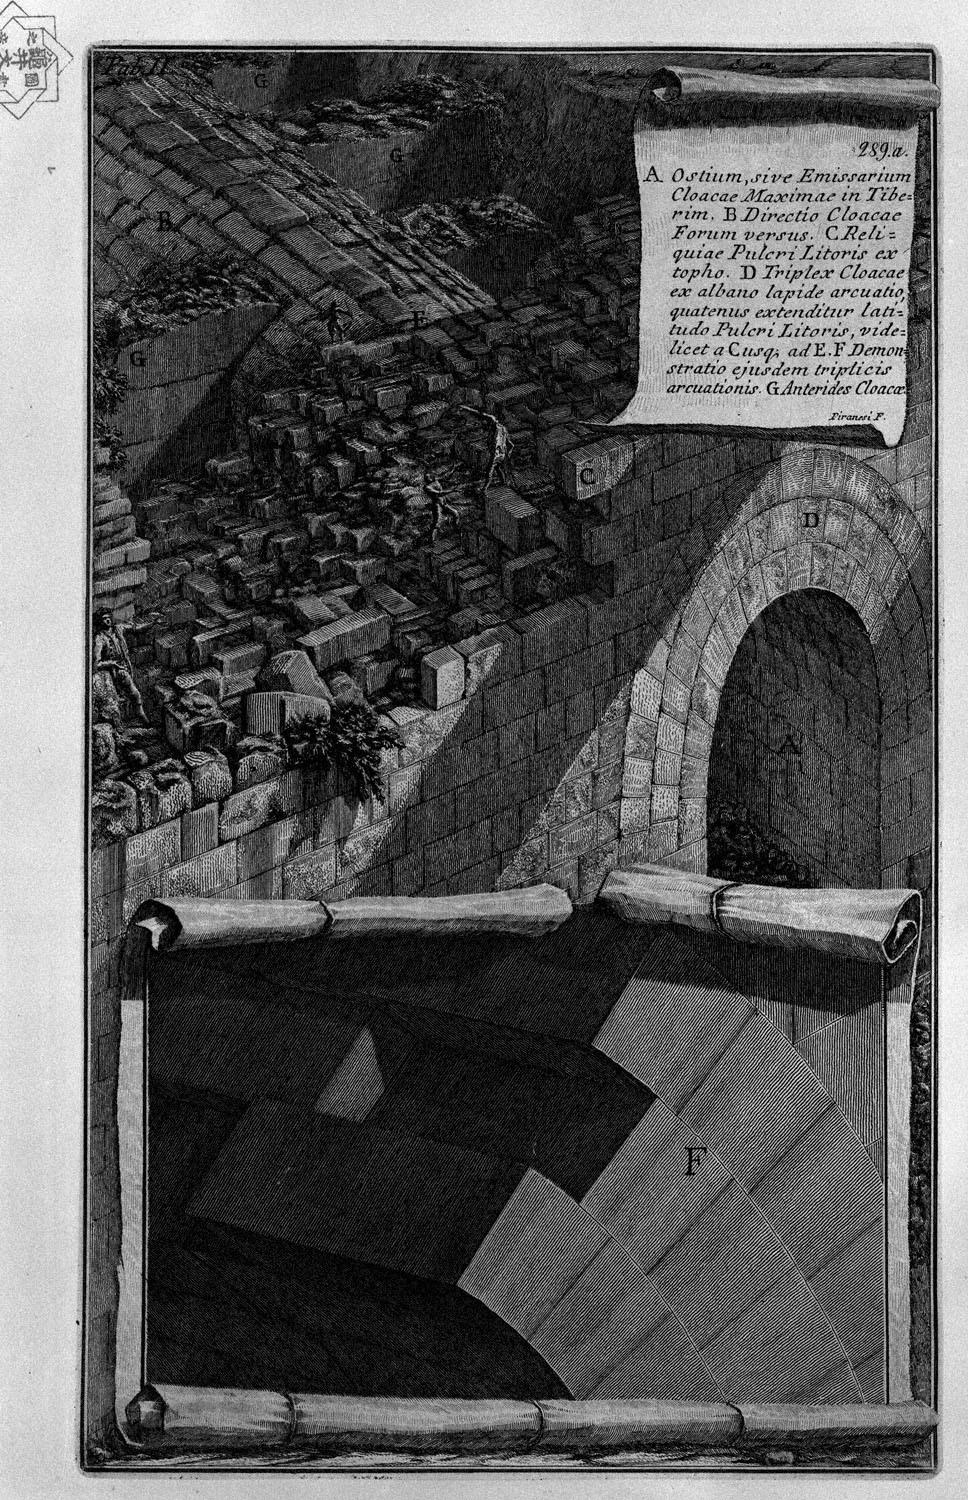 Tab. II.
G
G
289.a.
A Ostium, sive Emissarium
Cloacae Maximae in Tibe=
rim. B Directio Cloacae
Forum versus. C Reli=
quiae Pulcri Litoris ex
topho. D Triplex Cloacae
ex albano lapide arcuatio,
quatenus extenditur lati=
tudo Pulcri Litoris, vide=
licet a C usq; ad E. F Demon=
stratio ejusdem triplicis
arcuationis. G Anterides Cloacæ
Piranesi F.
B
G
E
G
C
D
A
F